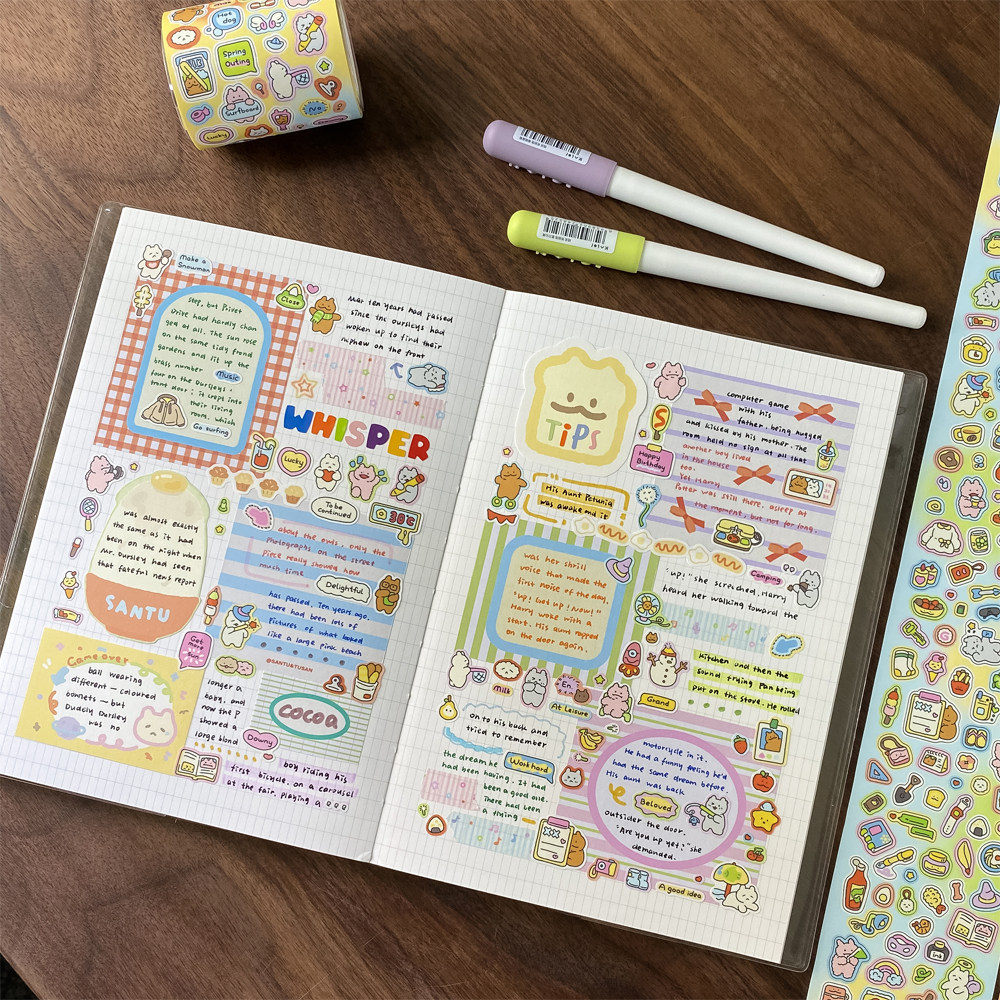 Hot dog
Spring Outing
Surfboard
Lucky
Make a Snowman
step, but Privet
Drive had hardly chan
ged at all. The sun rose
on the same tidy frond
gardens and lit up the
brass number
four on the Dursleys'
front door; it crept into
their living
room, which
Music
Go surfing
Close
Mar ten years had passed
since the Dursleys had
woken up to find their
nephew on the front
WHISPER
Lucky
To be continued
30℃
was almost exactly
the same as it had
been on the night when
Mr. Dursley had seen
that fateful news report
SANTU
about the owls. only the
photographs on the street
piece really showed how
much time
Delightful
has passed. Ten years ago,
there had been lots of
pictures of what looked
like a large pink beach
@SANTU&TUSAN
Game over
ball wearing
different-coloured
bonnets - but
Duddly Dursley
was no
longer a
baby, and
now the p
showed a
large blond
cocoa
Downy
boy riding his
first bicycle, on a carousel
at the fair, playing a
TiPS
Happy Birthday
computer game
with his
father, being hugged
and kissed by his mother. The
room held no sign at all that
another boy lived
in the house
too.
Yet Harry
Potter was still there, asleep at
the moment, but not for long.
His Aunt Petunia
was awake and it
was her shrill
voice that made the
first noise of the day.
"Up! Get up! Now!"
Harry woke with a
start. His aunt rapped
on the door again.
Camping
"up!" she screeched. Harry
heard her walking toward the
kitchen and then the
sound frying pan being
put on the stove. He rolled
Milk
En
At Leisure
Grand
on to his back and
tried to remember
the dream he
had been having. It had
been a good one.
There had been
a flying
Work hard
motorcycle in it.
He had a funny feeling he'd
had the same dream before.
His aunt was back
Beloved
outsider the door.
"Are you up yet?" she
demanded.
A good idea
Ink